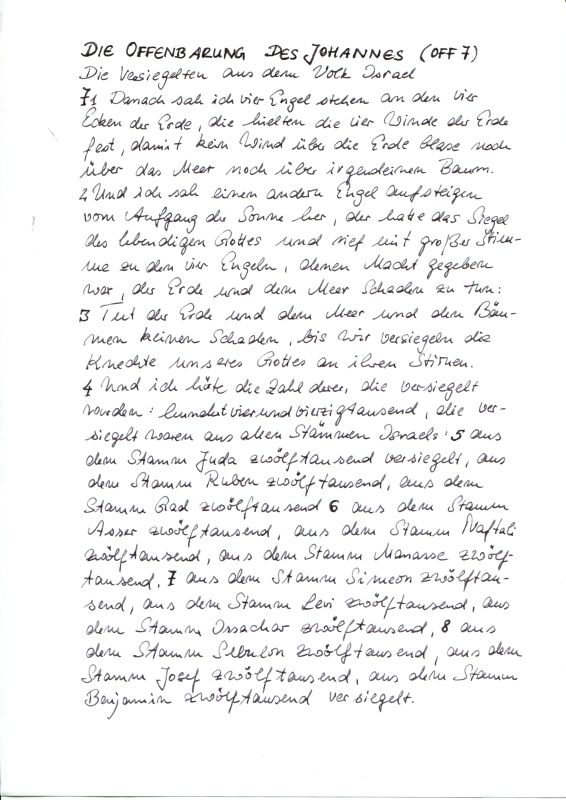 DIE OFFENBARUNG DES JOHANNES (OFF 7)
Die Versiegelten aus dem Volk Israel
71 Danach sah ich vier Engel stehen an den vier
Ecken der Erde, die hielten die vier Winde der Erde
fest, damit kein Wind über die Erde blase noch
über das Meer noch über irgendeinen Baum.
2 Und ich sah einen andern Engel aufsteigen
vom Aufgang der Sonne her, der hatte das Siegel
des lebendigen Gottes und rief mit großer Stim-
me zu den vier Engeln, denen Macht gegeben
war, der Erde und dem Meer Schaden zu tun:
3 Tut der Erde und dem Meer und den Bäu-
men keinen Schaden, bis wir versiegeln die
Knechte unseres Gottes an ihren Stirnen.
4 Und ich hörte die Zahl derer, die versiegelt
wurden: hundertvierundvierzigtausend, die ver-
siegelt waren aus allen Stämmen Israels: 5 aus
dem Stamm Juda zwölftausend versiegelt, aus
dem Stamm Ruben zwölftausend, aus dem
Stamm Gad zwölftausend 6 aus dem Stamm
Asser zwölftausend, aus dem Stamm Naftali
zwölftausend, aus dem Stamm Manasse zwölf-
tausend, 7 aus dem Stamm Simeon zwölftau-
send, aus dem Stamm Levi zwölftausend, aus
dem Stamm Issachar zwölftausend, 8 aus
dem Stamm Sebulon zwölftausend, aus dem
Stamm Josef zwölftausend, aus dem Stamm
Benjamin zwölftausend versiegelt.